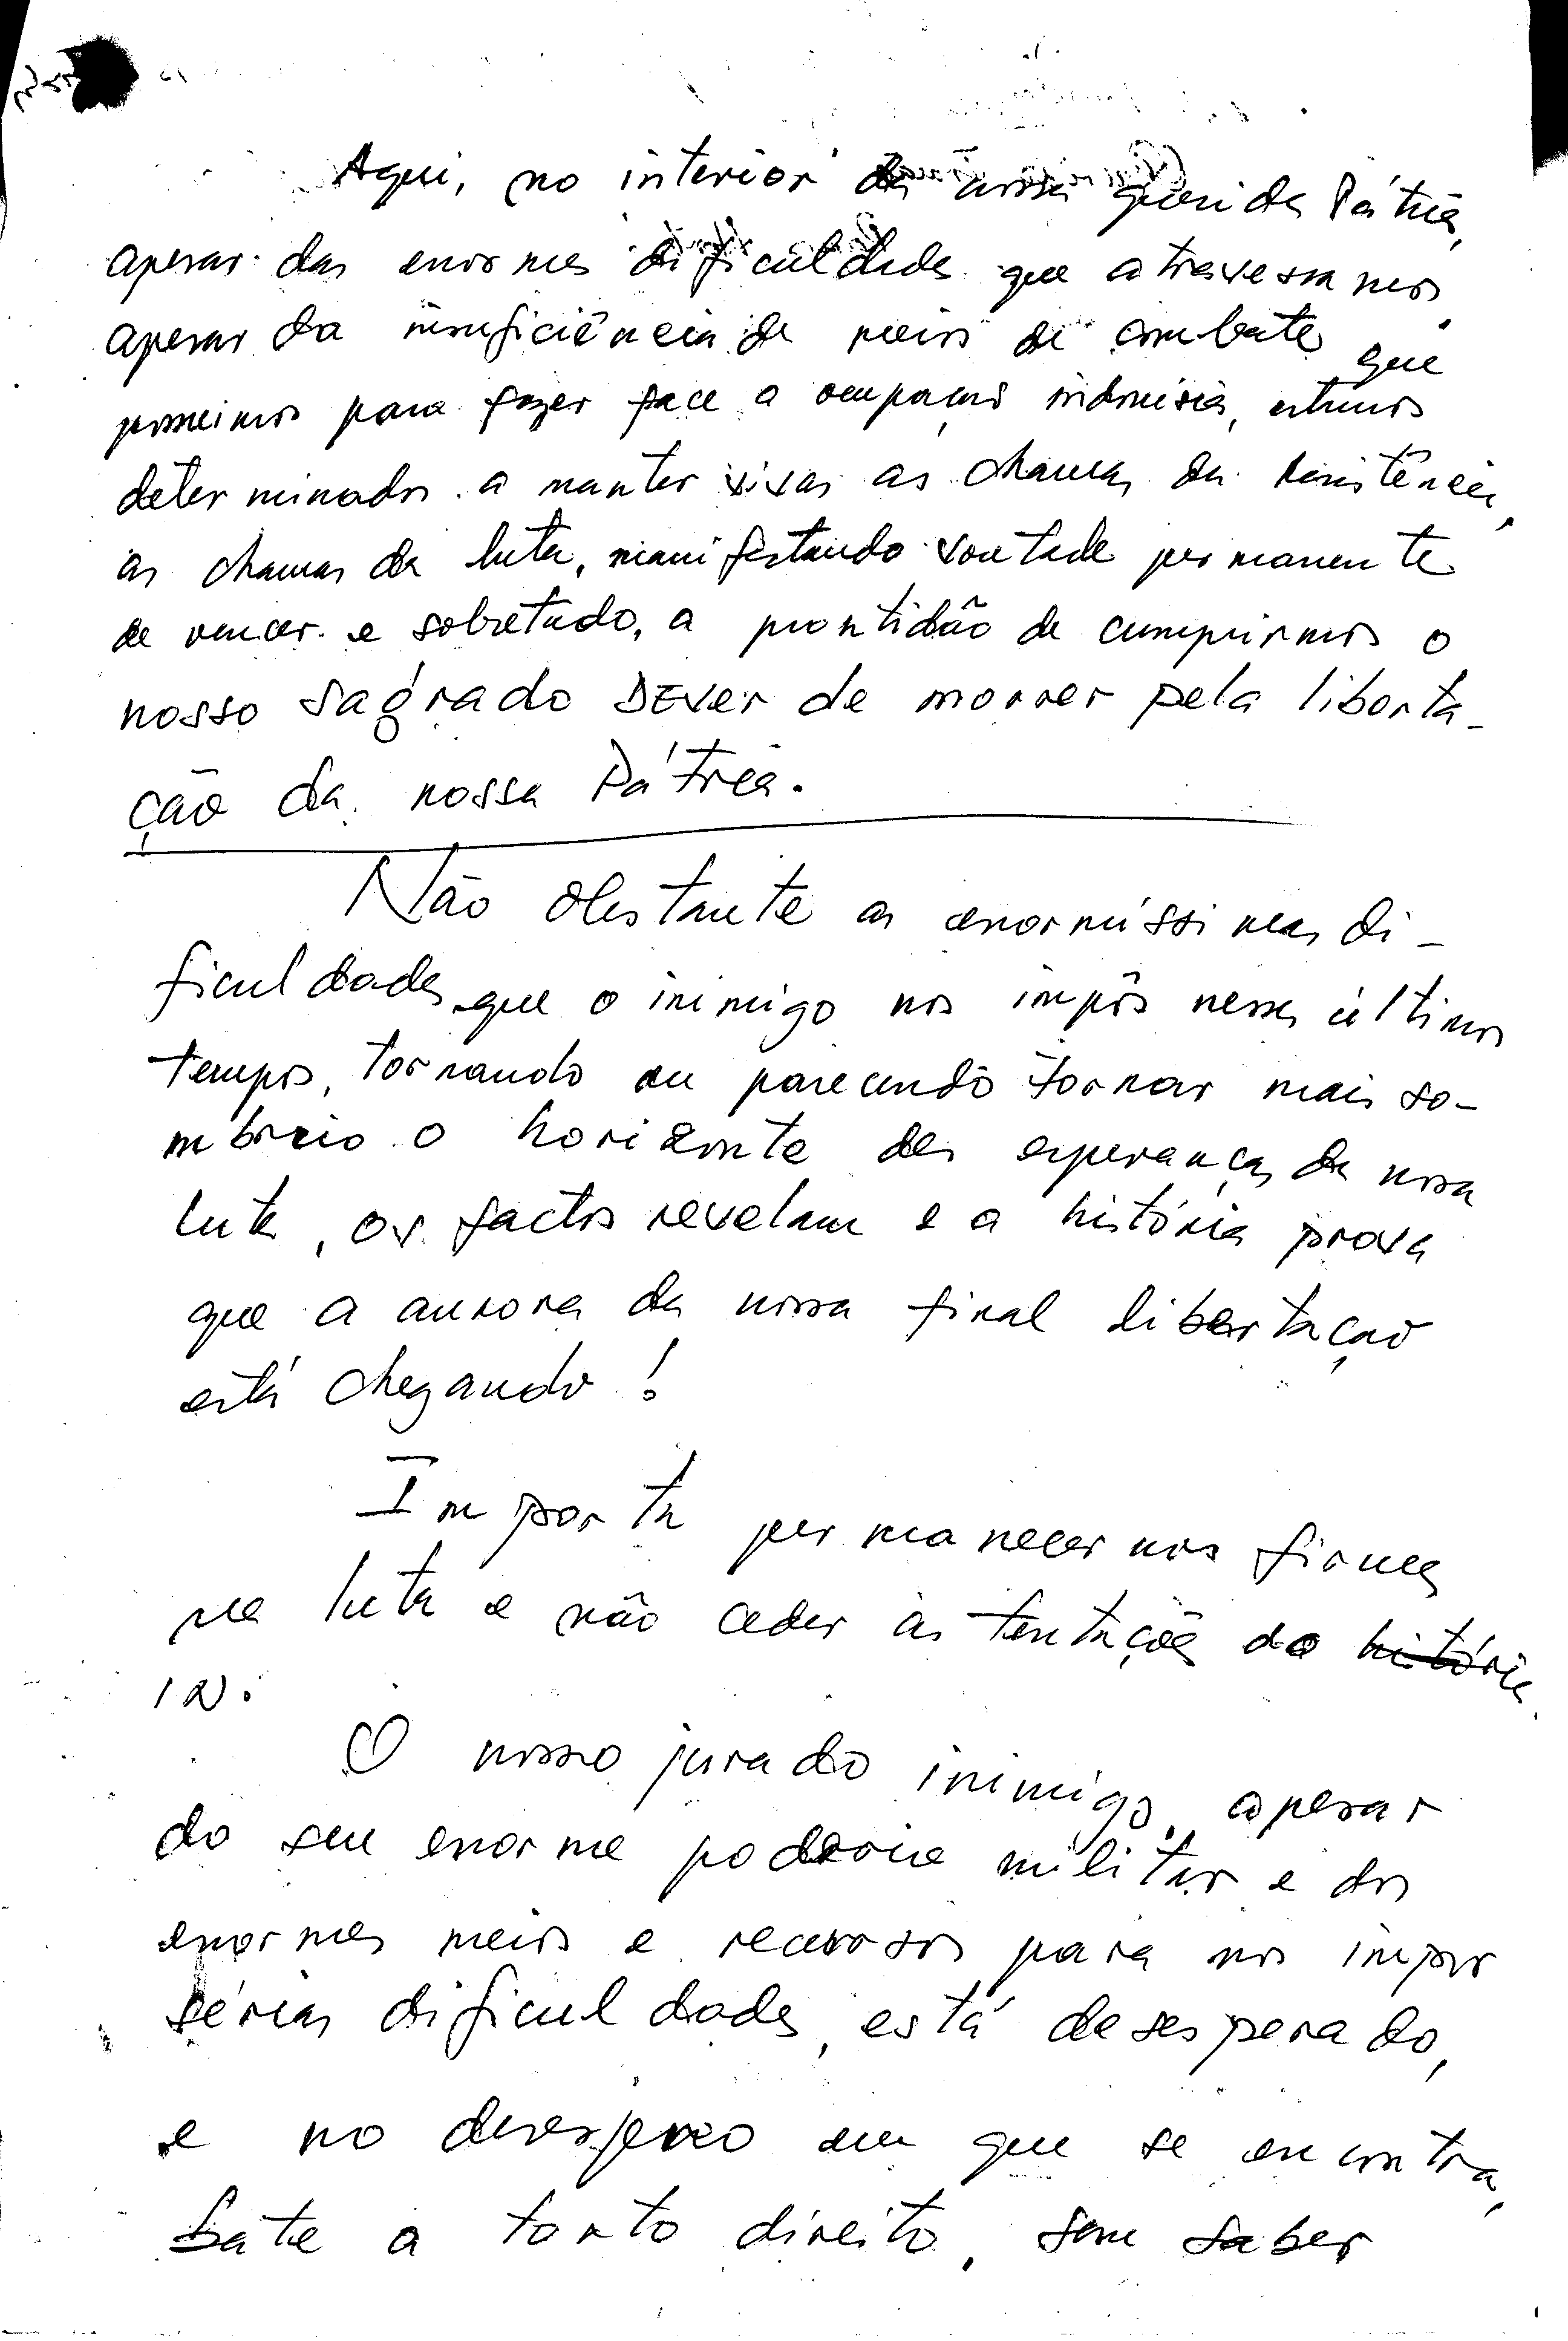 Aqui, no interior da nossa querida Pátria,
apesar das enormes dificuldades que atravessamos,
apesar da insuficiência de meios de combate que
possuimos para fazer face a ocupação indonésia, estamos
determinados a manter vivas as chamas da Resistência,
as chamas da luta, manifestando vontade permanente
de vencer e sobretudo, a prontidão de cumprirmos o
nosso sagrado DEver de morrer pela liberta-
ção da nossa Pátria.
Não obstante as enormíssimas di-
ficuldades que o inimigo nos impôs nesses últimos
tempos, tornando ou parecendo tornar mais so-
mbrio o horizonte das esperanças da nossa
luta, os factos revelam e a história prova
que a aurora da nossa final libertação
está chegando!
Importa permanecermos firmes
na luta e não ceder às tentações do história
IN.
O nosso jurado inimigo, apesar
do seu enorme poderio militar e dos
enormes meios e recursos para nos impor
sérias dificuldades, está desesperado,
e no desespero em que se encontra,
bate a torto direito, sem saber